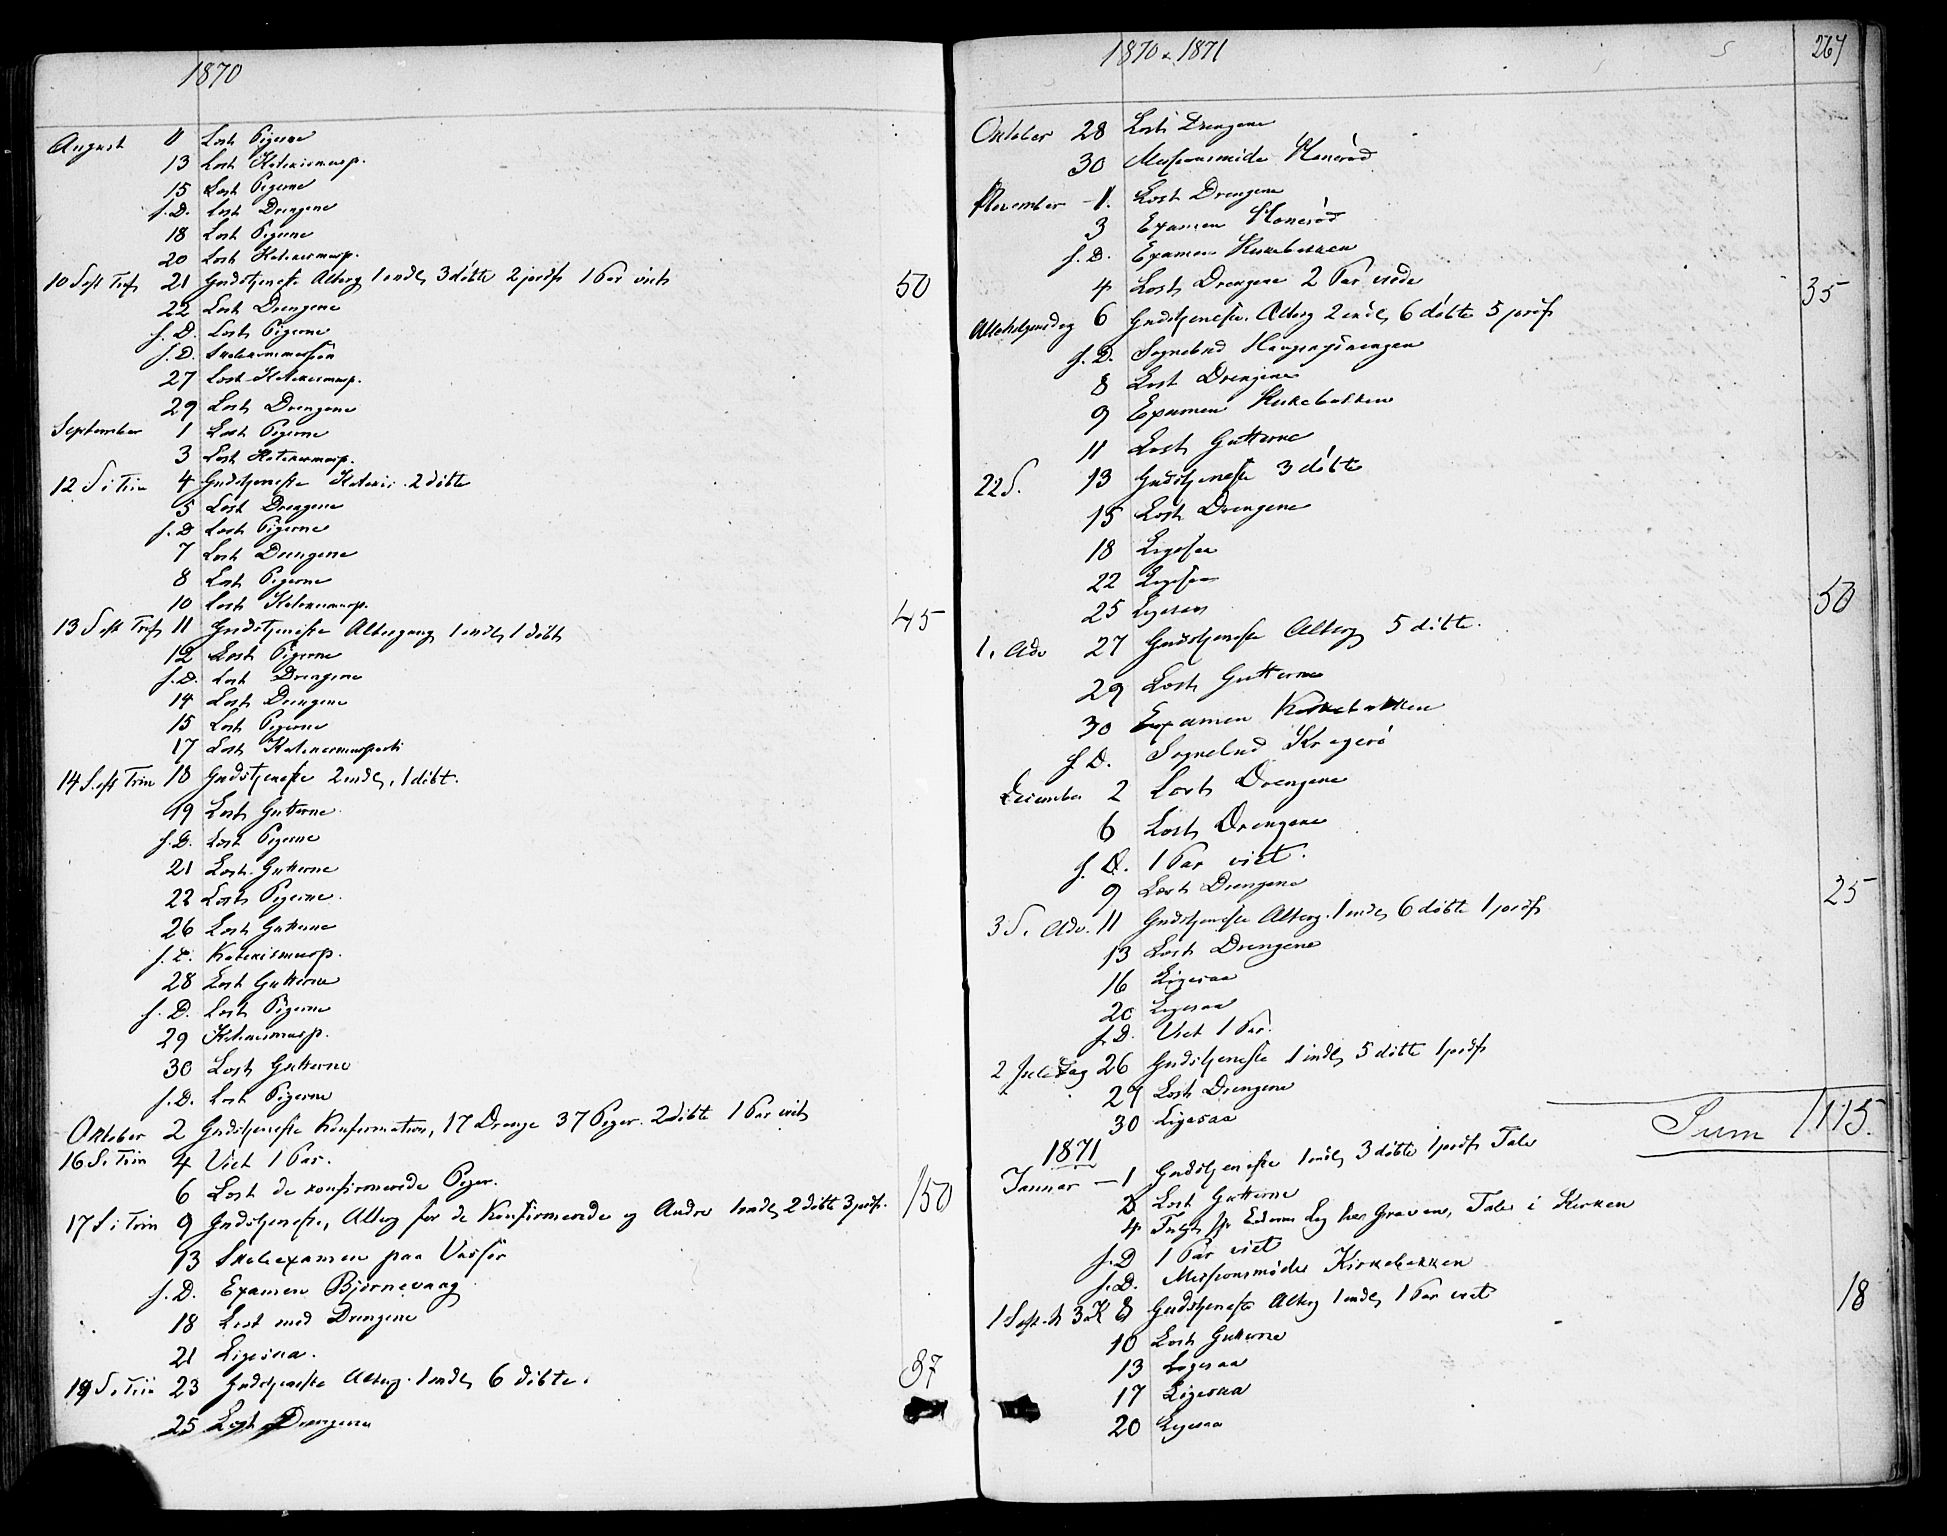 1870
August 11 Læst Pigerne
13 Læst Katekismusp.
15 Læst Pigerne
s.D. Læst Drengene
18 Læst Pigerne
20 Læst Katekismusp.
10 S eft Tref 21 Gudstjeneste Alterg 1 indl, 3 døbte 2 jordf 1 Par viet 50
22 Læst Drengene
s.D. Læst Pigerne
s.D.
27 Læst Katekismusp.
29 Læst Drengene
September 1 Læst Pigerne
3 Læst Katekismusp.
12 S i Trin 4 Gudstjeneste Katekis. 2 døbte
5 Læst Drengene
s.D Læst Pigerne
7 Læst Drengene
8 Læst Pigerne
10 Læst Katekismusp.
13 S eft Tref 11 Gudstjeneste Altergang 1 indl, 1 døbt 45
12 Læst Pigerne
s.D. Læst Drengene
14 Læst Drengene
15 Læst Pigerne
17 Læst
14 S. eft Trin 18 Gudstjeneste 2 indl, 1 døbt.
19 Læst Gutterne
s.D. Læst Pigerne
21 Læst Gutterne
22 Læst Pigerne.
26 Læst Gutterne
s.D. Katekismusp.
28 Læst Gutterne
s.D. Læst Pigerne
29 Katekismusp.
30 Læst Gutterne
s.D. Læst Pigerne
Oktober 2 Gudstjeneste Konfirmation, 17 Drenge 37 Piger. 2 døbte 1 Par viet
16 S. Trin 4 Viet 1 Par.
6 Læst de konfirmerede Piger.
17 S i Trin 9 Gudstjeneste, Alterg for de Konfirmerede og Andre 1 indl, 2 døbte 3 jordf. 150
13 Skoleexamen paa
s.D. Examen Bjørnevaag
18 Læst med Drengene
21 Ligesaa.
19 S. Trin 23 Gudstjeneste Alterg. 1 indl, 6 døbte. 37
25 Læst Drengene
1870 & 1871 267
Oktober 28 Læst Drengene
30 Missionsmøde
November 1. Læst Drengene
3 Examen
s.D. Examen Kirkebakken
4 Læst Drengene 2 Par viede
Allehelgensdag 6 Gudstjeneste. Alterg 2 indl, 6 døbte 5 jordf 35
s.D. Sognebud
8 Læst Drengene
9 Examen Kirkebakken
11 Læst Gutterne
22 S. 13 Gudstjeneste 3 døbte
15 Læst Drengene
18 Ligesaa
22 Ligesaa
25 Ligesaa
1. Adv 27 Gudstjeneste Alterg 5 døbte. 50
29 Læst Gutterne
30 Examen Kirkebakken
s.D. Sognebud Kragerø
December 2 Læst Drengene
6 Læst Drengene
s.D. 1 Par viet.
9 Læst Drengene
3 S. Adv. 11 Gudstjeneste Alterg. 1 indl, 6 døbte 1 jordf 25
13 Læst Drengene
16 Ligesaa
20 Ligesaa
s.D. Viet 1 Par.
2 Juledag 26 Gudstjeneste 1 indl, 5 døbte 1 jordf
27 Læst Drengene
30 Ligesaa
Sum 1115.
1871
Januar – 1 Gudstjeneste 1 indl, 3 døbte 1 jordf Tale
3 Læst Gutterne
4 Graven, Tale i Kirken
s.D 1 Par viet
s.D. Missionsmøde Kirkebakken
1 S eft. H 3 K 8 Gudstjeneste Alterg 1 indl, 1 Par viet 18
10 Læst Gutterne
13 Ligesaa
17 Ligesaa
20 Ligesaa